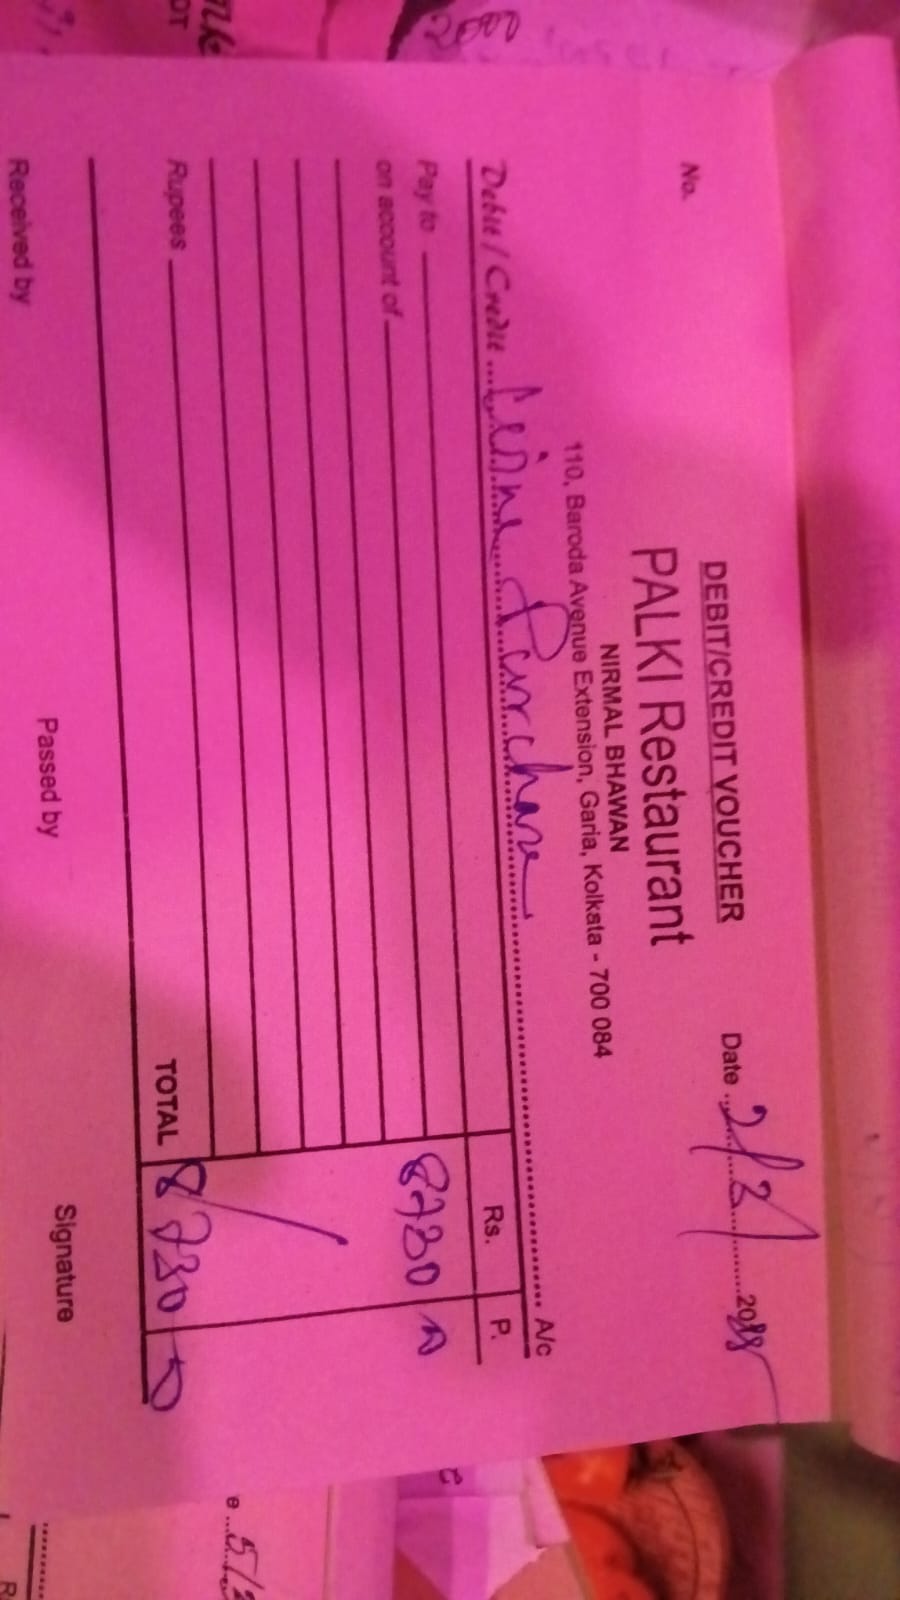 DEBIT/CREDIT VOUCHER
No.
Date 2/2/
PALKI Restaurant
NIRMAL BHAWAN
110, Baroda Avenue Extension, Garia, Kolkata - 700 084
Debit / Credit Purchase A/c
Rs. P.
Pay to 8730
on account of
Rupees TOTAL 8730
Received by Passed by Signature